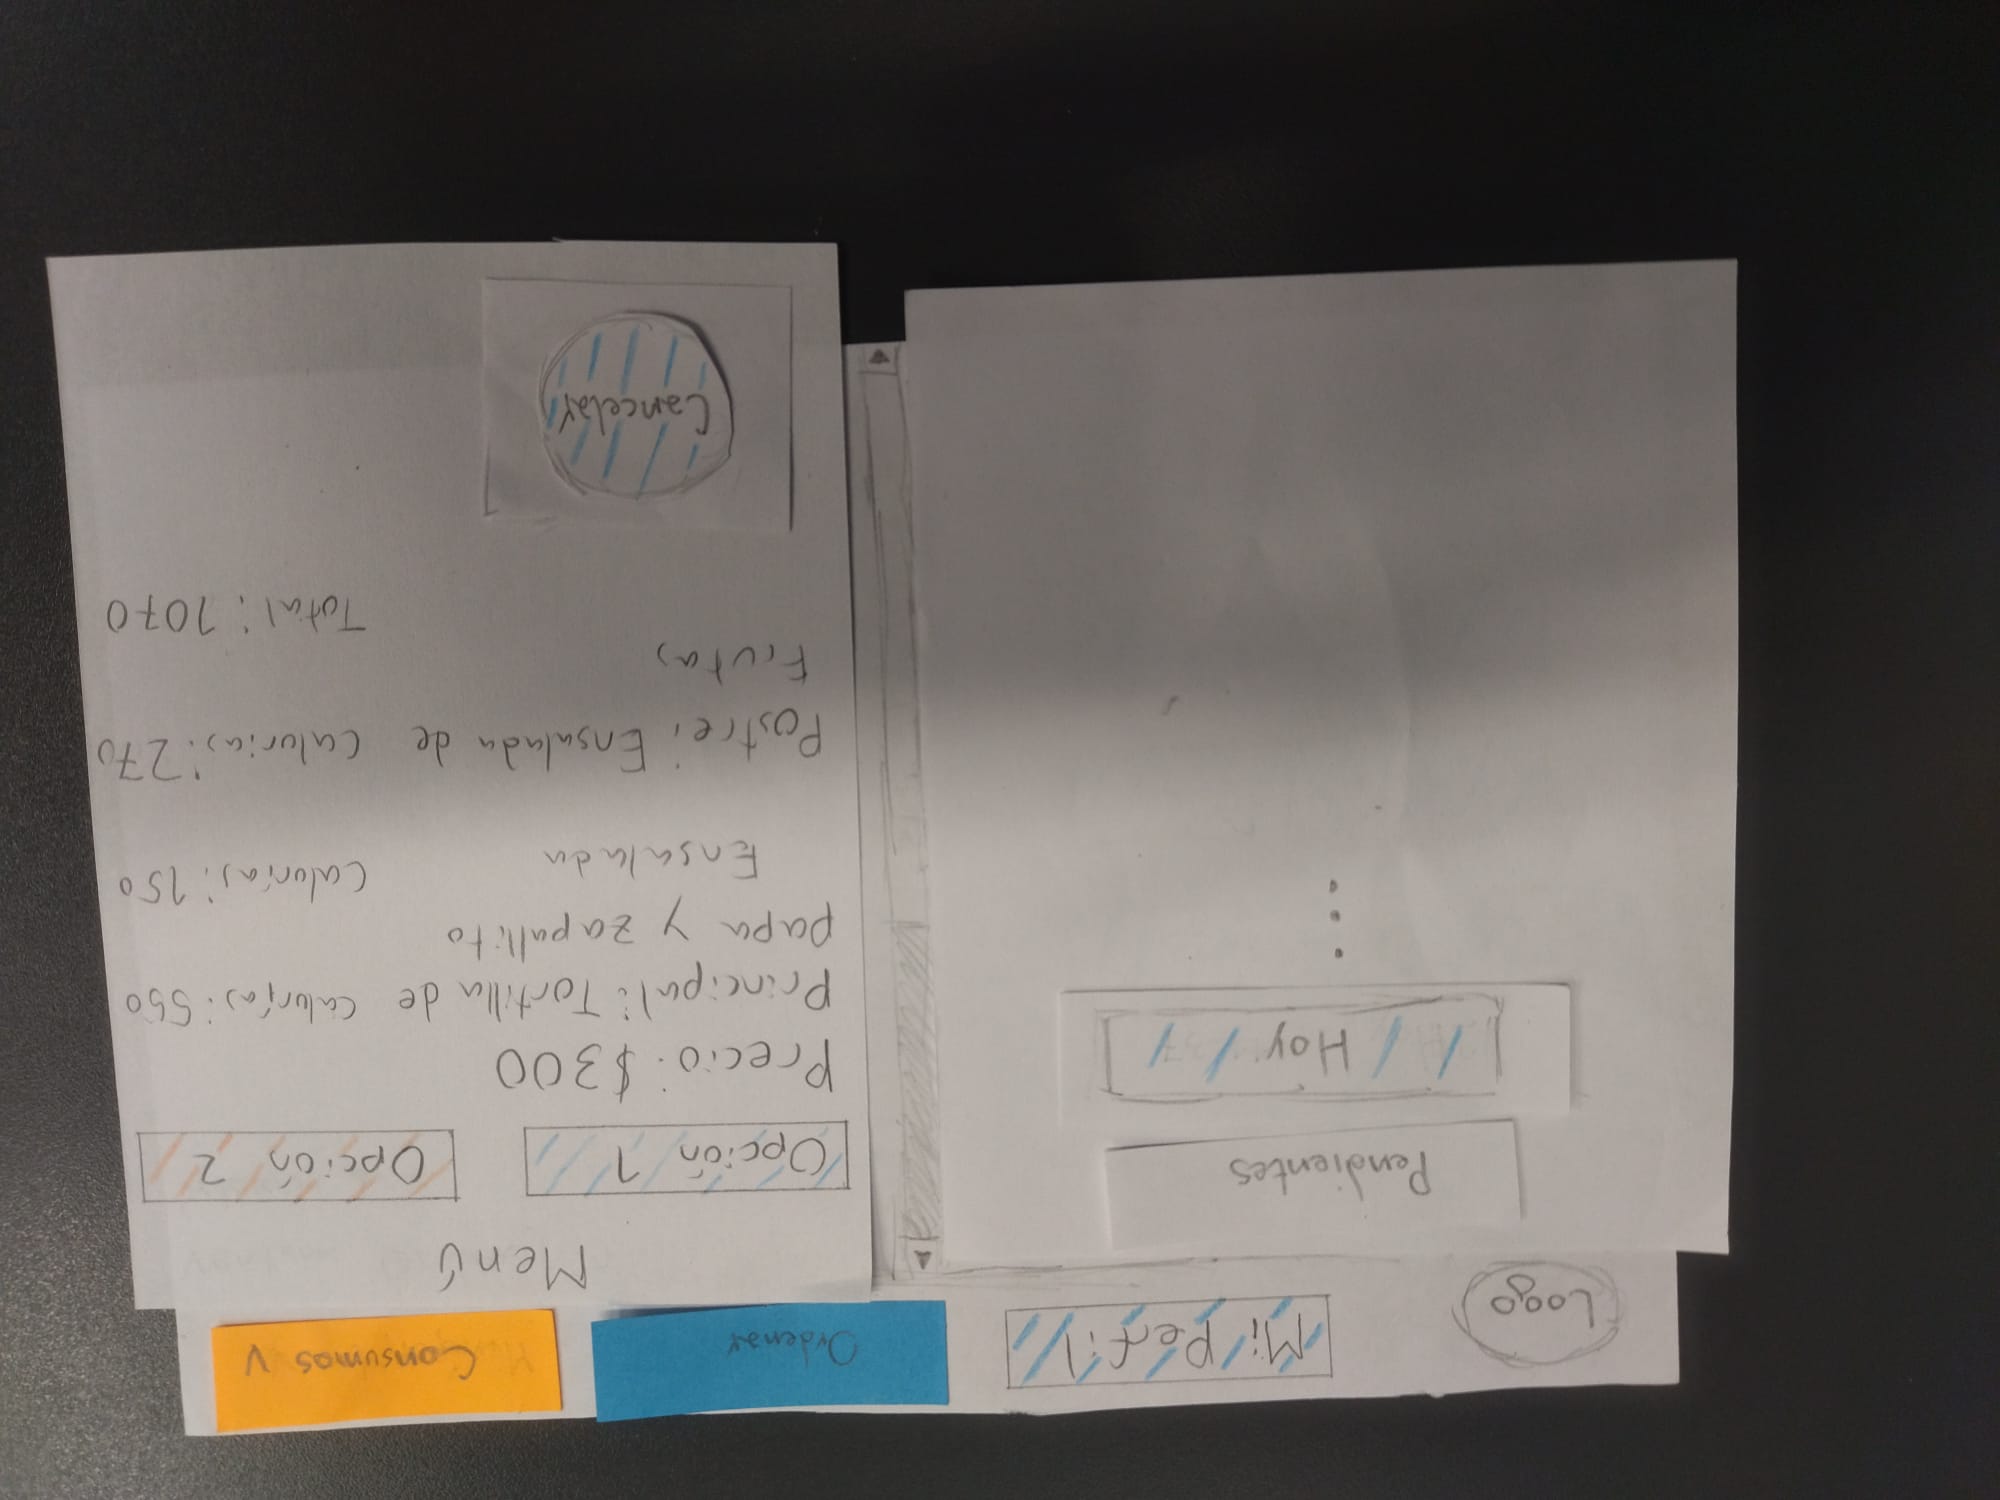 Logo
Mi Perfil
Ordenar
Consumos V
Pendientes
Hoy
Menú
Opción 1
Opción 2
Precio: $300
Principal: Tortilla de Calorías: 550
papa y zapallito
Ensalada Calorías: 150
Postre: Ensalada de Calorias: 270
Frutas
Total: 1070
Cancelar